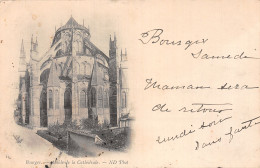 Bourges
Samedi
Maman sera
de retour
lundi soir
sans faute
Bourges. - Abside de la Cathédrale. - ND Phot